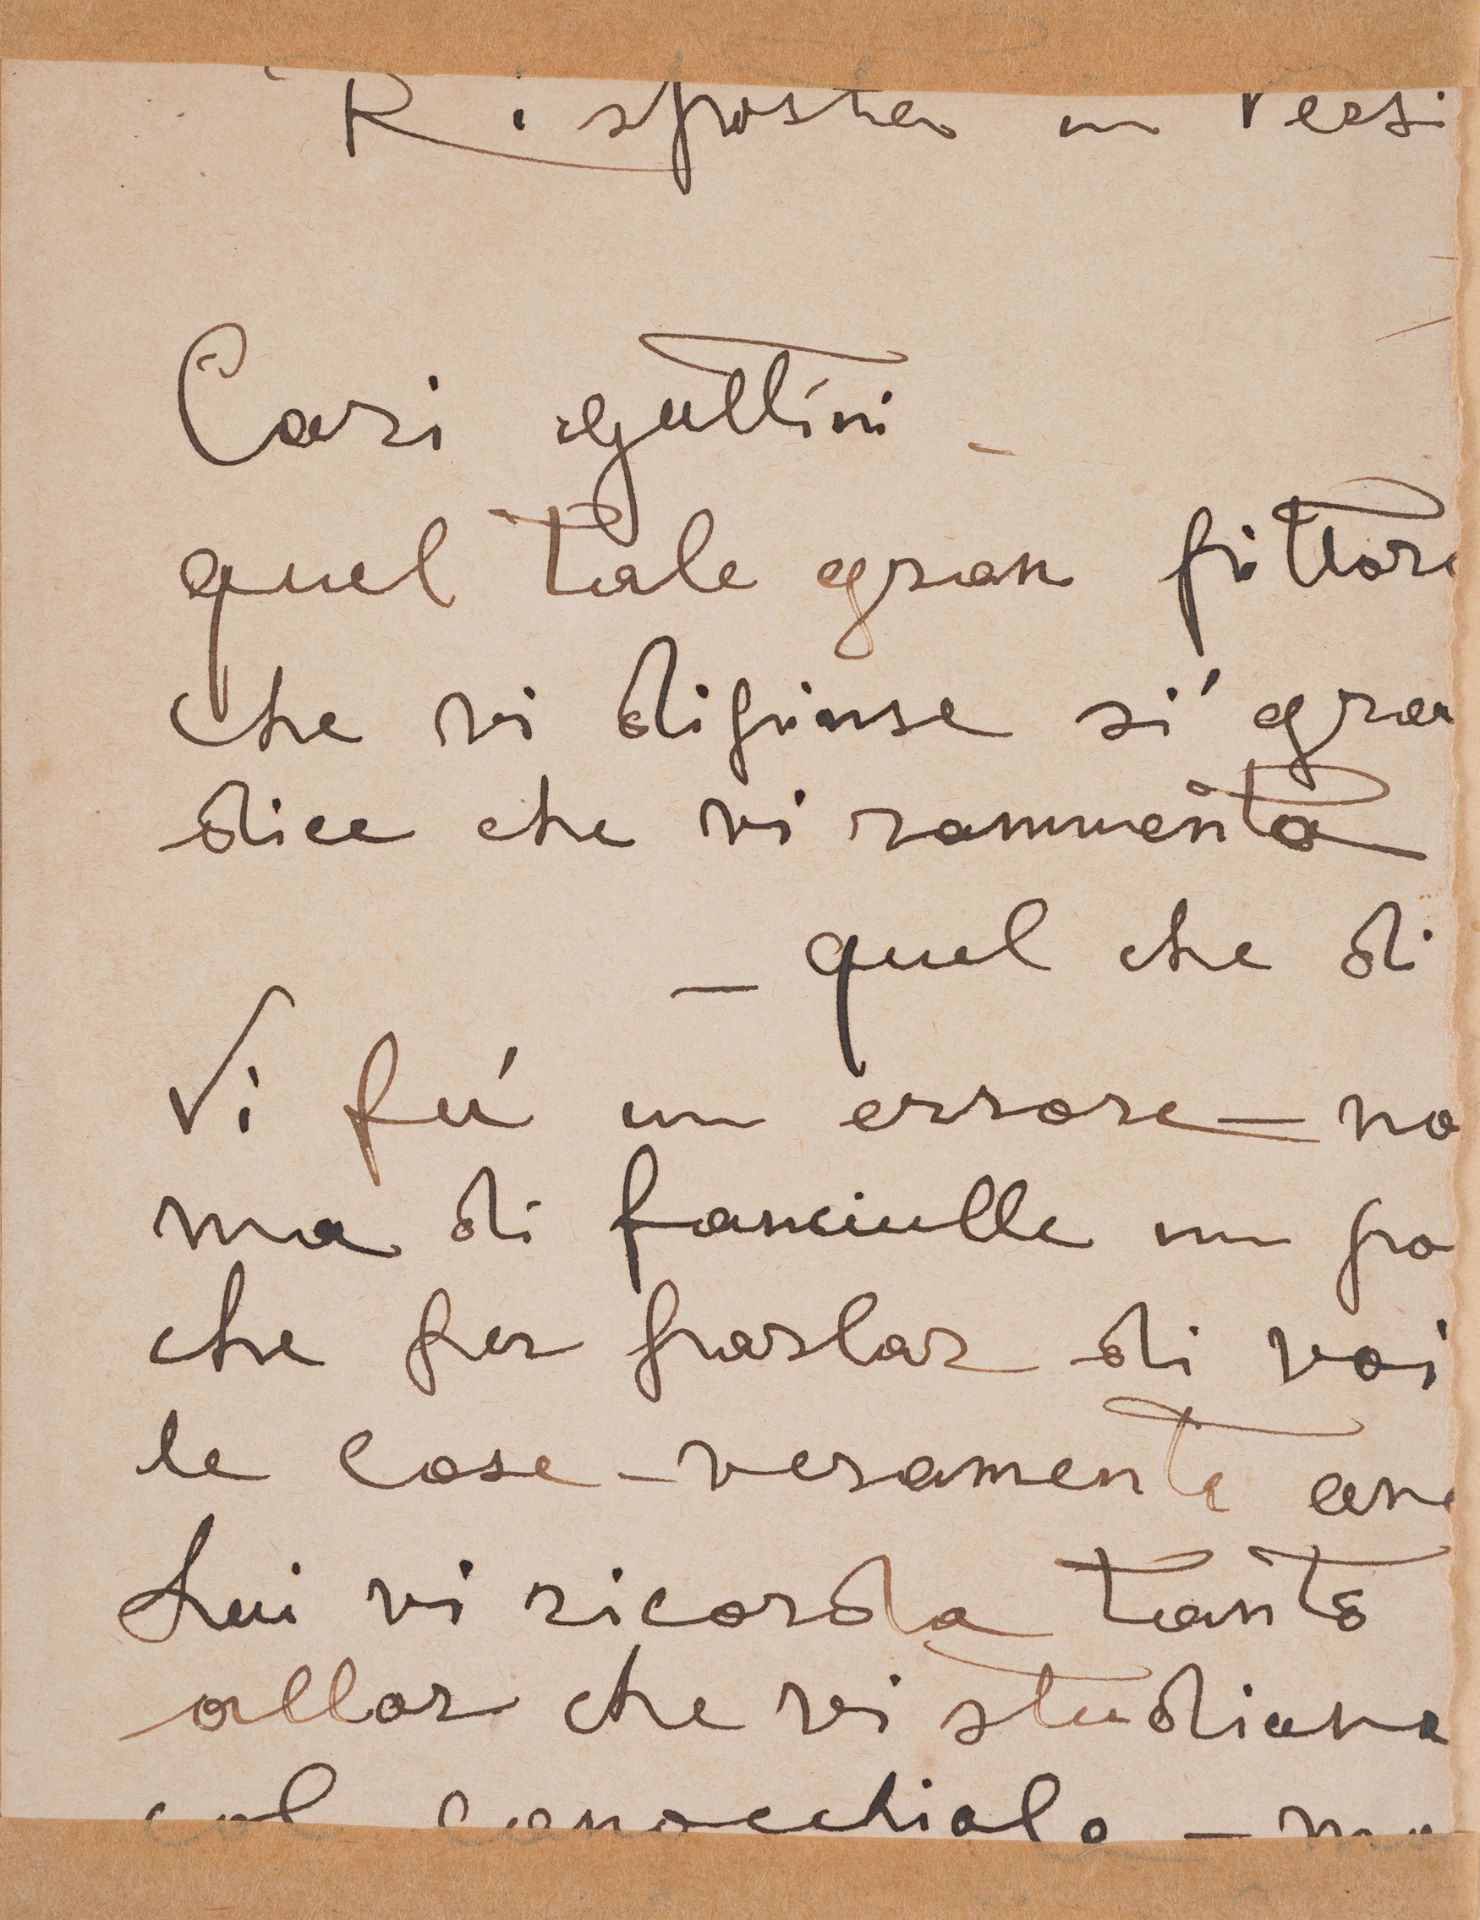 Risposta in versi
Cari gattini -
quel tale gran pittore
che vi dipinse sí gra
dice che vi rammenta
- quel che di
Vi fú un errore - no
ma di fanciulle un po
che per parlar di voi
le cose - veramente an
Lui vi ricorda tanto
allor che vi studiava
col canocchiale - ma